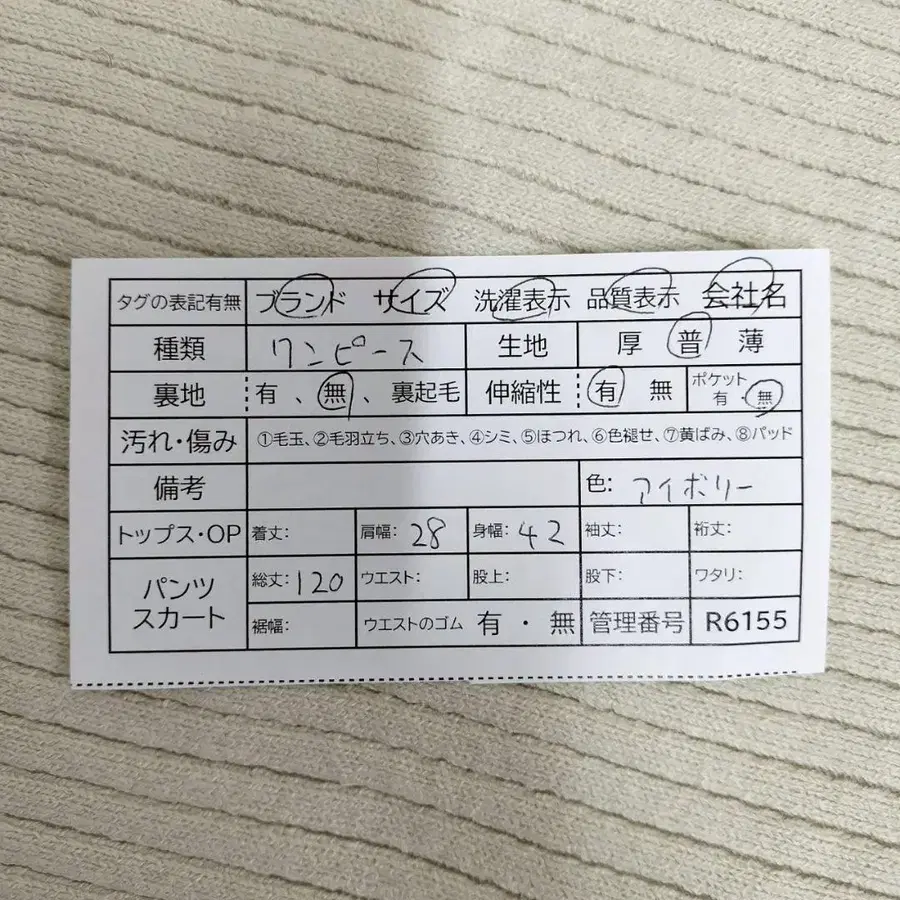 タグの表記有無 ブランド サイズ 洗濯表示 品質表示 会社名
種類 ワンピース 生地 厚 普 薄
裏地 有、無、裏起毛 伸縮性 有 無 ポケット 有・無
汚れ・傷み ①毛玉、②毛羽立ち、③穴あき、④シミ、⑤ほつれ、⑥色褪せ、⑦黄ばみ、⑧パッド
備考 色: アイボリー
トップス・OP 着丈: 肩幅: 28 身幅: 42 袖丈: 裄丈:
パンツ スカート 総丈: 120 ウエスト: 股上: 股下: ワタリ:
裾幅: ウエストのゴム 有・無 管理番号 R6155